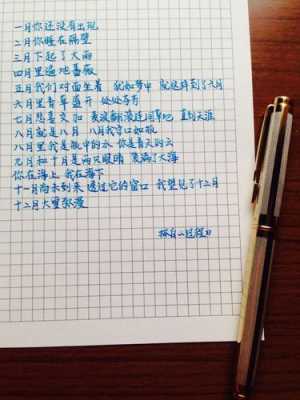 一月你还没有出现
二月你睡在隔壁
三月下起了大雨
四月里遍地蔷薇
五月我们对面坐着 犹如梦中 就这样到了六月
六月里青草盛开 处处芬芳
七月悲喜交加 麦浪翻滚连同草地 直到天涯
八月就是八月 八月我守口如瓶
八月里我是瓶中的水 你是青天的云
九月和十月是两只眼睛 装满了大海
你在海上 我在海下
十一月尚未到来 透过它的窗口 我望见了十二月
十二月大雪弥漫
林白《过程》